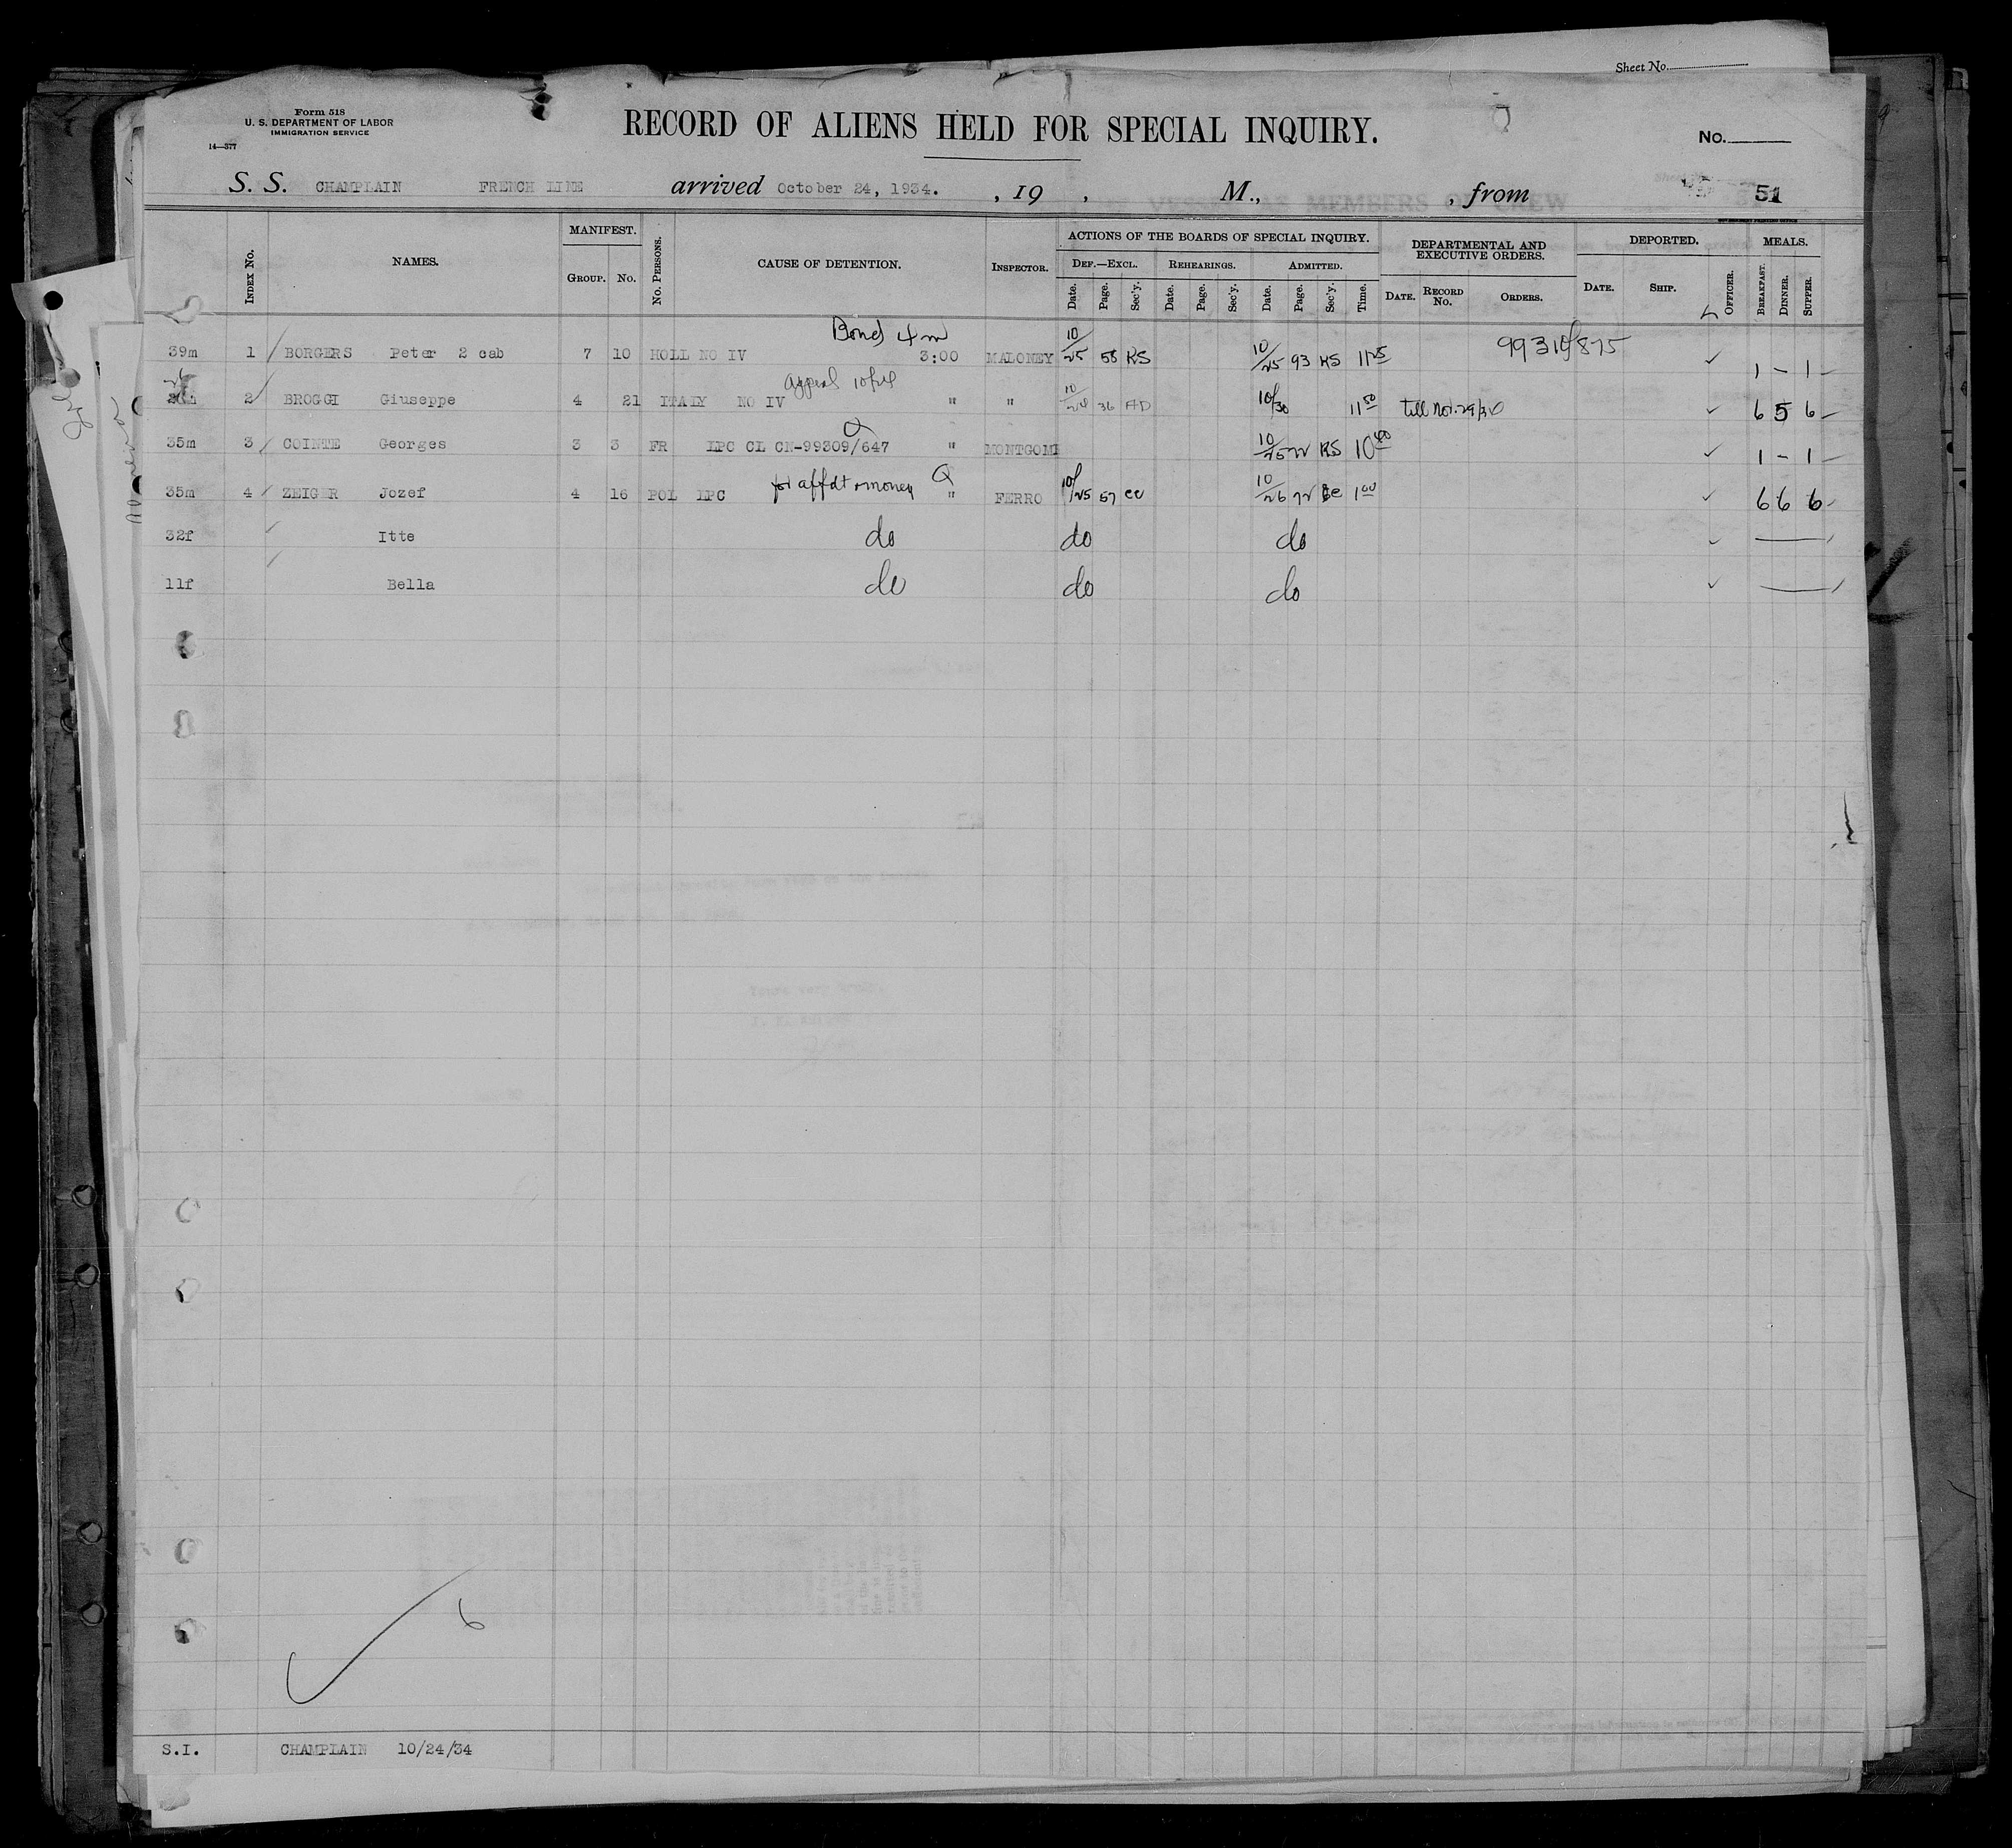 Sheet No.
Form 518
U. S. DEPARTMENT OF LABOR
IMMIGRATION SERVICE
14—377
RECORD OF ALIENS HELD FOR SPECIAL INQUIRY.
No.
S. S. CHAMPLAIN FRENCH LINE arrived October 24, 1934. , 19 , M., , from 51
INDEX No. NAMES. MANIFEST. GROUP. No. No. PERSONS. CAUSE OF DETENTION. INSPECTOR. ACTIONS OF THE BOARDS OF SPECIAL INQUIRY. DEF.—EXCL. Date. Page. Sec'y. REHEARINGS. Date. Page. Sec'y. ADMITTED. Date. Page. Sec'y. Time. DEPARTMENTAL AND EXECUTIVE ORDERS. DATE. RECORD No. ORDERS. DEPORTED. DATE. SHIP. OFFICER. MEALS. BREAKFAST. DINNER. SUPPER.
Bond 4 m
39m 1 BORGERS Peter 2 cab 7 10 HOLL NO IV 3:00 MALONEY 10/25 58 RS 10/25 93 RS 11 25 99310/875 1 - 1 -
Appeal
2 BROGGI Giuseppe 4 21 ITALY NO IV " " 36 AD 10/30 11 50 till Nov. 29/34 6 5 6 -
35m 3 COINTE Georges 3 3 FR LPC CL CN-99309/647 " MONTGOM 10/25 RS 10 40 1 - 1 -
for affdt + money Q
35m 4 ZEIGER Jozef 4 16 POL LPC " FERRO 10/25 57 ee 10/26 72 1 00 6 6 6 -
32f Itte do do do
11f Bella do do do
6
S.I. CHAMPLAIN 10/24/34